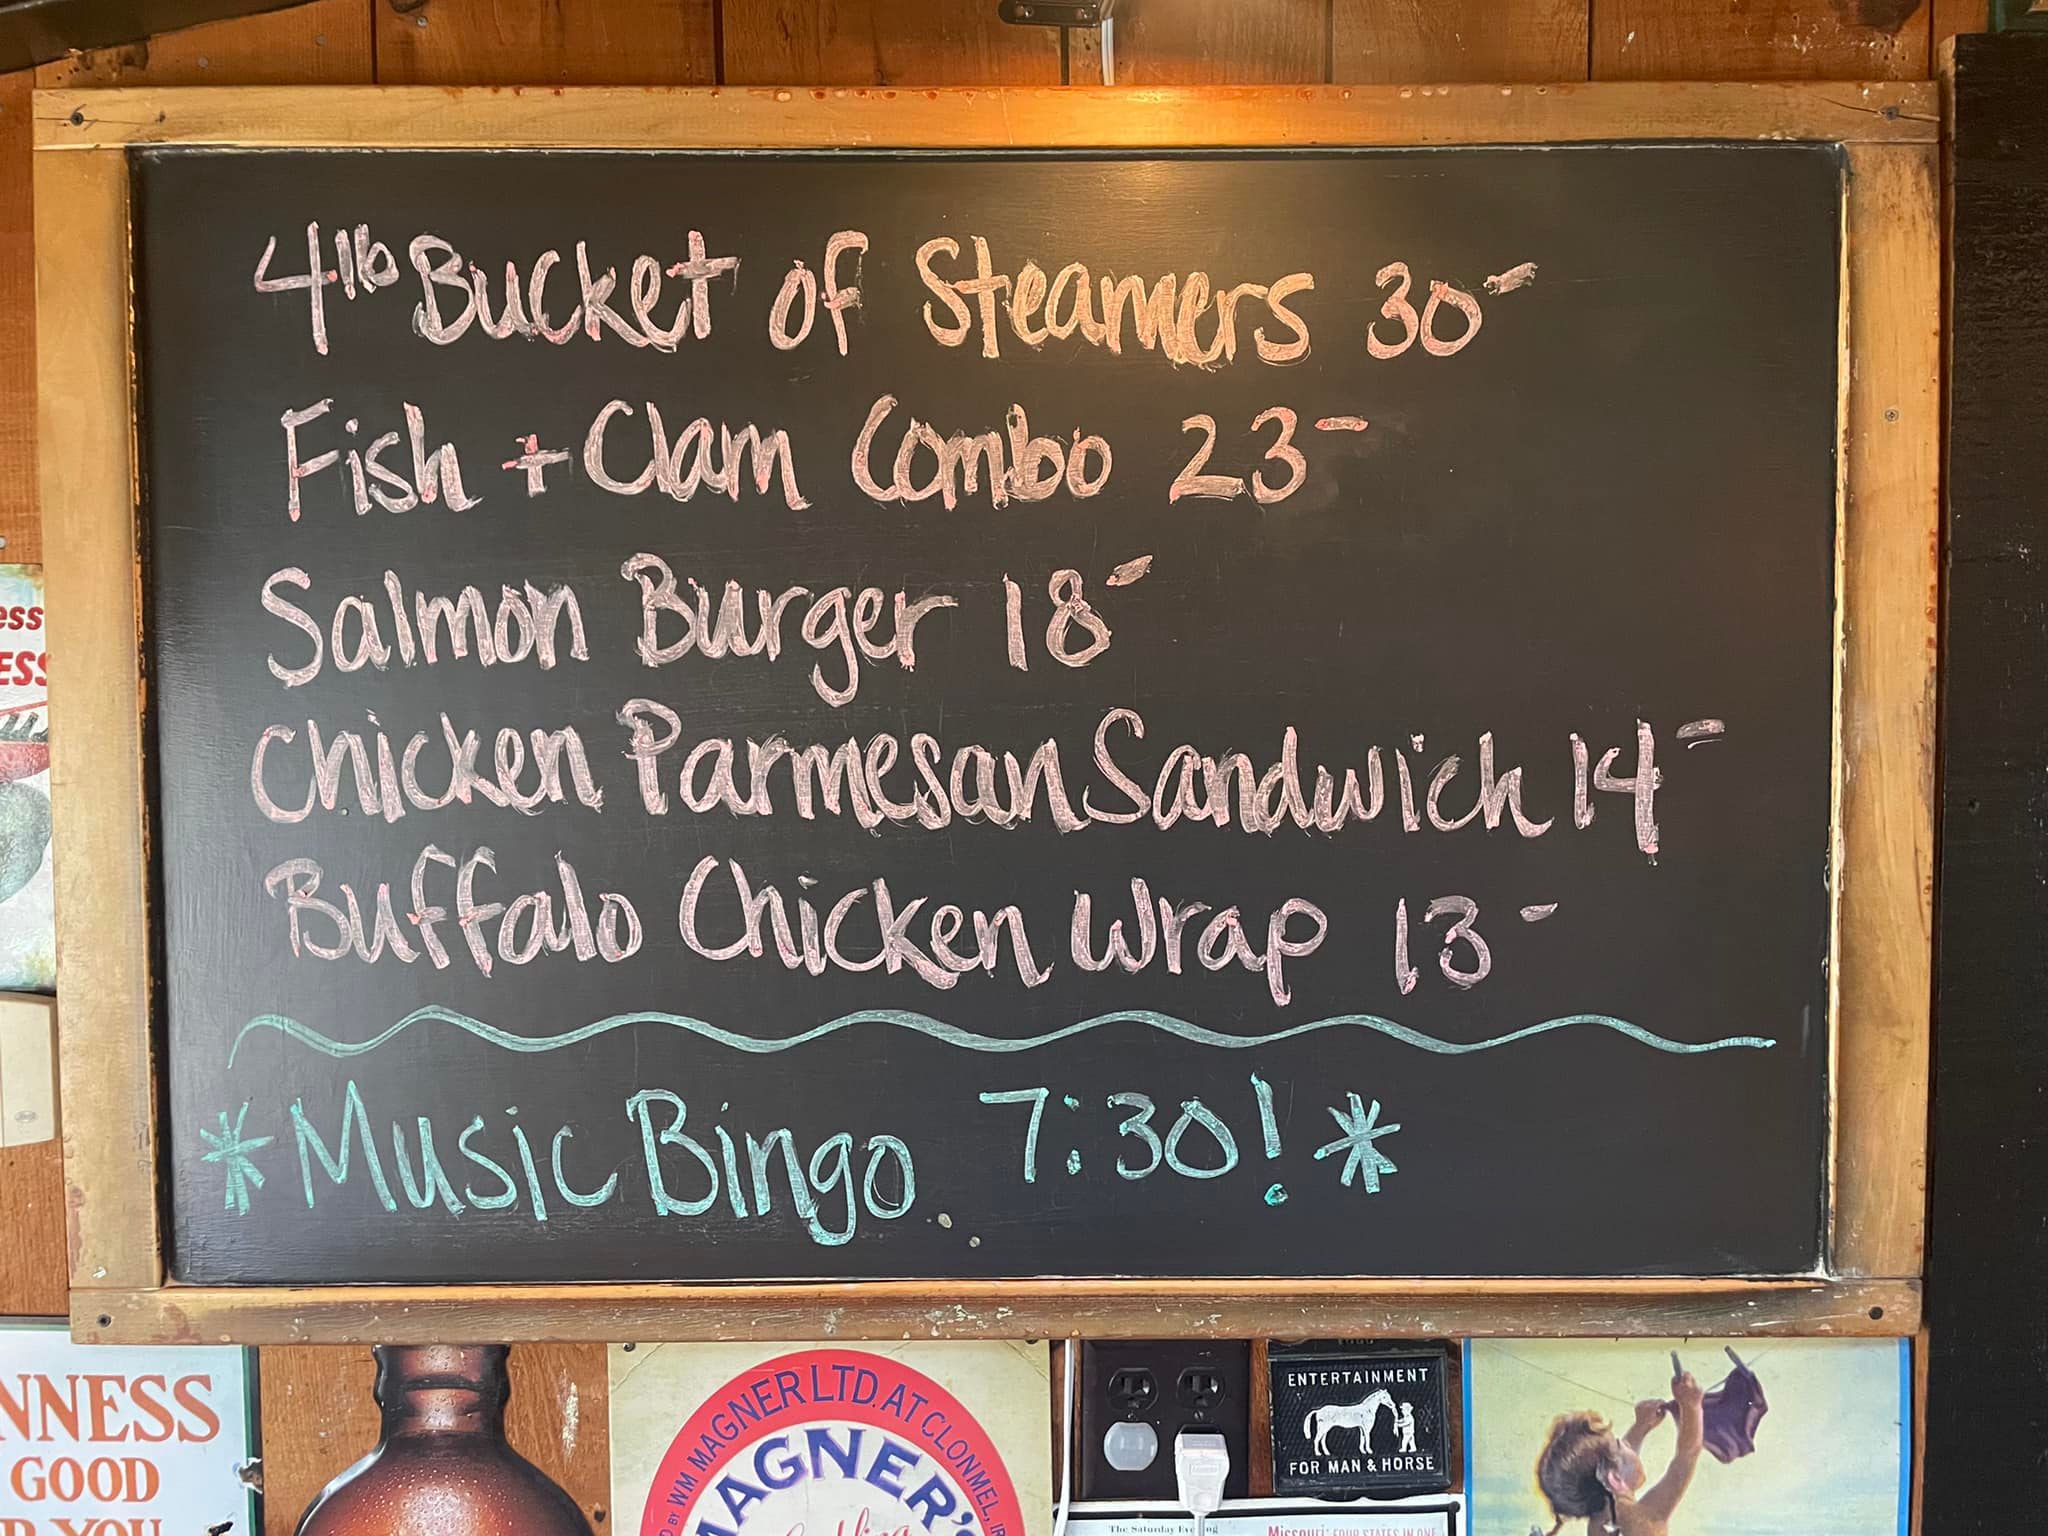 4lb Bucket of Steamers 30-
Fish + Clam Combo 23-
Salmon Burger 18-
Chicken Parmesan Sandwich 14-
Buffalo Chicken Wrap 13-
*Music Bingo 7:30!*
ESS
NNESS
GOOD
YOU
WM MAGNER LTD. AT CLONMEL,
MAGNER'S
ENTERTAINMENT
FOR MAN & HORSE
The Saturday Evening
Missouri: FOUR STATES IN ONE